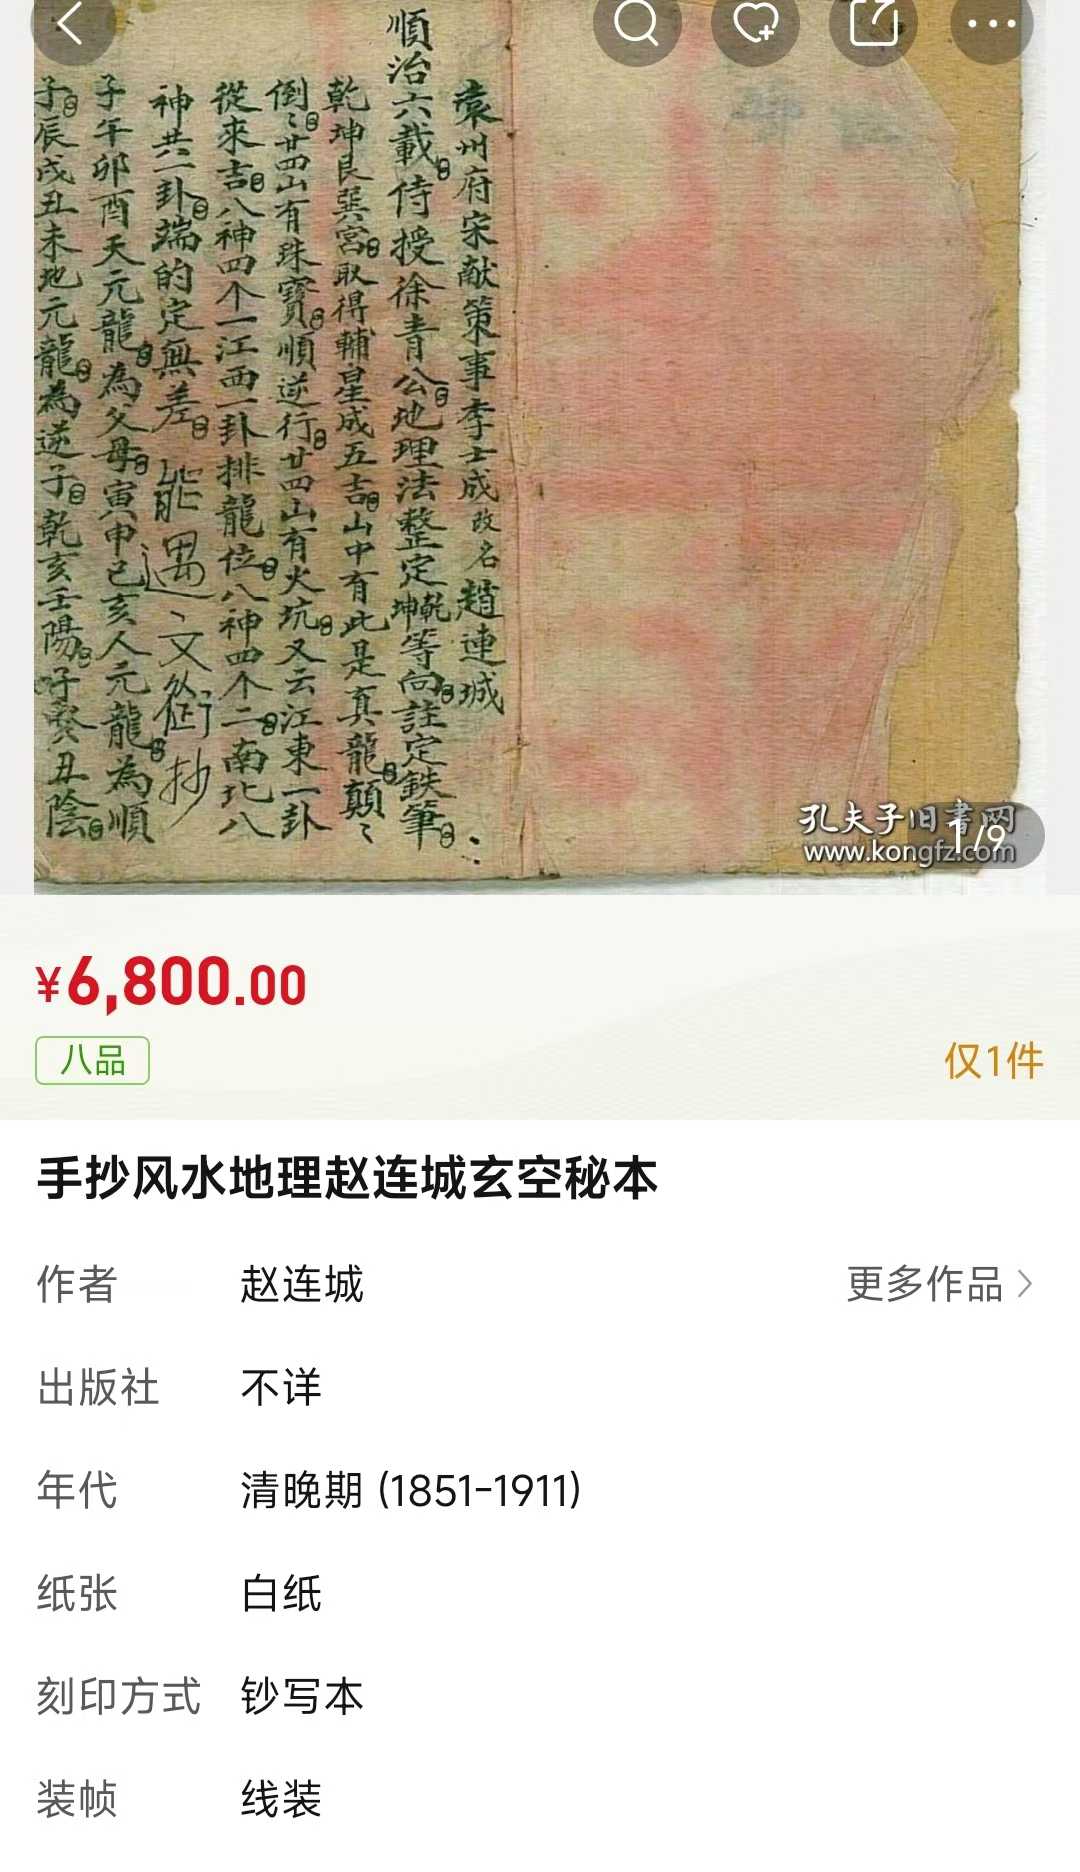 袁州府宋献策事李士成改名趙連城
順治六載侍授徐青公地理法整定乾坤等向註定鉄筆
乾坤艮巽宮取得輔星成五吉山中有此是真龍顛〻
倒〻廿四山有珠寶順逆行廿四山有火坑又云江東一卦
從來吉八神四个一江西一卦排龍位八神四个二南北八
神共一卦端的定無差能遇〻文衡抄
子午卯酉天元龍為父母寅申巳亥人元龍為順
子辰戌丑未地元龍為逆子乾亥壬陽子癸丑陰
孔夫子旧書网
www.kongfz.com
1/9
¥6,800.00
八品
仅1件
手抄风水地理赵连城玄空秘本
作者 赵连城 更多作品
出版社 不详
年代 清晚期 (1851-1911)
纸张 白纸
刻印方式 钞写本
装帧 线装